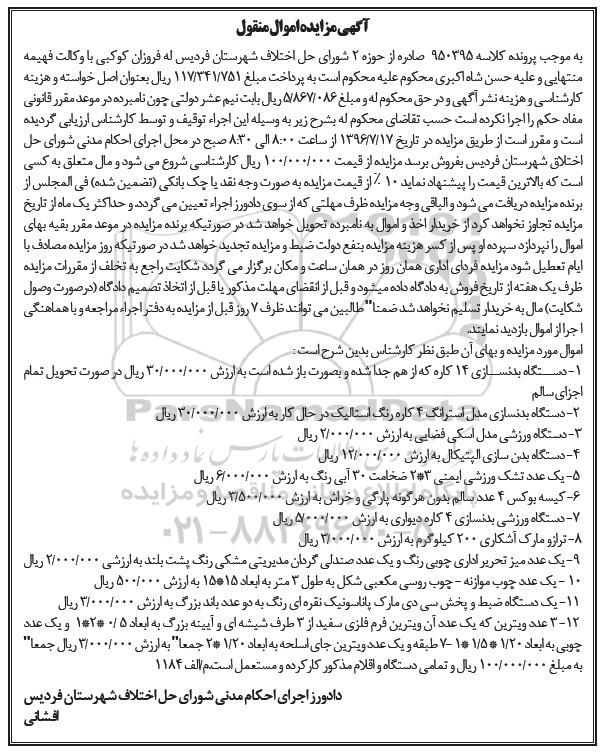 آگهی مزایده اموال منقول
به موجب پرونده کلاسه ۹۵۰۳۹۵ صادره از حوزه ۲ شورای حل اختلاف شهرستان فردیس له فروزان کوکبی با وکالت فهیمه
منتهایی و علیه حسن شاه اکبری محکوم علیه محکوم است به پرداخت مبلغ ۱۱۷/۳۴۱/۷۵۱ ریال بعنوان اصل خواسته و هزینه
کارشناسی و هزینه نشر آگهی و در حق محکوم له و مبلغ ۵/۸۶۷/۰۸۶ ریال بابت نیم عشر دولتی چون نامبرده در موعد مقرر قانونی
مفاد حکم را اجرا نکرده است حسب تقاضای محکوم له بشرح زیر به وسیله این اجراء توقیف و توسط کارشناس ارزیابی گردیده
است و مقرر است از طریق مزایده در تاریخ ۱۳۹۶/۷/۱۷ از ساعت ۸:۰۰ الی ۸:۳۰ صبح در محل اجرای احکام مدنی شورای حل
اختلاق شهرستان فردیس بفروش برسد مزایده از قیمت ۱۰۰/۰۰۰/۰۰۰ ریال کارشناسی شروع می شود و مال متعلق به کسی
است که بالاترین قیمت را پیشنهاد نماید ۱۰ ٪ از قیمت مزایده به صورت وجه نقد یا چک بانکی (تضمین شده) فی المجلس از
برنده مزایده دریافت می شود و الباقی وجه مزایده ظرف مهلتی که از سوی دادورز اجراء تعیین می گردد و حداکثر یک ماه از تاریخ
مزایده تجاوز نخواهد کرد از خریدار اخذ و اموال به نامبرده تحویل خواهد شد در صورتیکه برنده مزایده در موعد مقرر بقیه بهای
اموال را نپردازد سپرده او پس از کسر هزینه مزایده بنفع دولت ضبط و مزایده تجدید خواهد شد در صورتیکه روز مزایده مصادف با
ایام تعطیل شود مزایده فردای اداری همان روز در همان ساعت و مکان برگزار می گردد شکایت راجع به تخلف از مقررات مزایده
ظرف یک هفته از تاریخ فروش به دادگاه داده میشود و قبل از انقضای مهلت مذکور یا قبل از اتخاذ تصمیم دادگاه (درصورت وصول
شکایت) مال به خریدار تسلیم نخواهد شد ضمنا" طالبین می توانند ظرف ۷ روز قبل از مزایده به دفتر اجراء مراجعه و با هماهنگی
اجرا از اموال بازدید نمایند.
اموال مورد مزایده و بهای آن طبق نظر کارشناس بدین شرح است :
۱- دستگاه بدنسازی ۱۴ کاره که از هم جدا شده و بصورت باز شده است به ارزش ۳۰/۰۰۰/۰۰۰ ریال در صورت تحویل تمام
اجزای سالم
۲- دستگاه بدنسازی مدل استرانگ ۴ کاره رنگ استالیک در حال کار به ارزش ۳۰/۰۰۰/۰۰۰ ریال
۳- دستگاه ورزشی مدل اسکی فضایی به ارزش ۲/۰۰۰/۰۰۰ ریال
۴- دستگاه بدن سازی الپتیکال به ارزش ۱۲/۰۰۰/۰۰۰ ریال
۵- یک عدد تشک ورزشی ایمنی ۳*۲ ضخامت ۳۰ آبی رنگ به ارزش ۶/۰۰۰/۰۰۰ ریال
۶- کیسه بوکس ۴ عدد سالم بدون هرگونه پارگی و خراش به ارزش ۳/۵۰۰/۰۰۰ ریال
۷- دستگاه ورزشی بدنسازی ۴ کاره دیواری به ارزش ۵/۰۰۰/۰۰۰ ریال
۸- ترازو مارک آشکاری ۲۰۰ کیلوگرم به ارزش ۳/۰۰۰/۰۰۰ ریال
۹- یک عدد میز تحریر اداری چوبی رنگ و یک عدد صندلی گردان مدیریتی مشکی رنگ پشت بلند به ارزشی ۲/۰۰۰/۰۰۰ ریال
۱۰ - یک عدد چوب موازنه - چوب روسی مکعبی شکل به طول ۳ متر به ابعاد ۱۵*۱۵ به ارزش ۵۰۰/۰۰۰ ریال
۱۱- یک دستگاه ضبط و پخش سی دی مارک پاناسونیک نقره ای رنگ به دو عدد باند بزرگ به ارزش ۳/۰۰۰/۰۰۰ ریال
۱۲- ۳ عدد ویترین که یک عدد آن ویترین فرم فلزی سفید از ۳ طرف شیشه ای و آیینه بزرگ به ابعاد ۰/۵ *۲*۱ و یک عدد
چوبی به ابعاد ۱/۲۰ * ۱/۵ *۱ -۷ طبقه و یک عدد ویترین جای اسلحه به ابعاد ۱/۲۰ *۲ جمعا" به ارزش ۳/۰۰۰/۰۰۰ ریال جمعا"
به مبلغ ۱۰۰/۰۰۰/۰۰۰ ریال و تمامی دستگاه و اقلام مذکور کارکرده و مستعمل است.م/الف ۱۱۸۴
دادورز اجرای احکام مدنی شورای حل اختلاف شهرستان فردیس
افشانی
ParsNamadData
۰۲۱-۸۸۳۴۹۶۷۰-۵